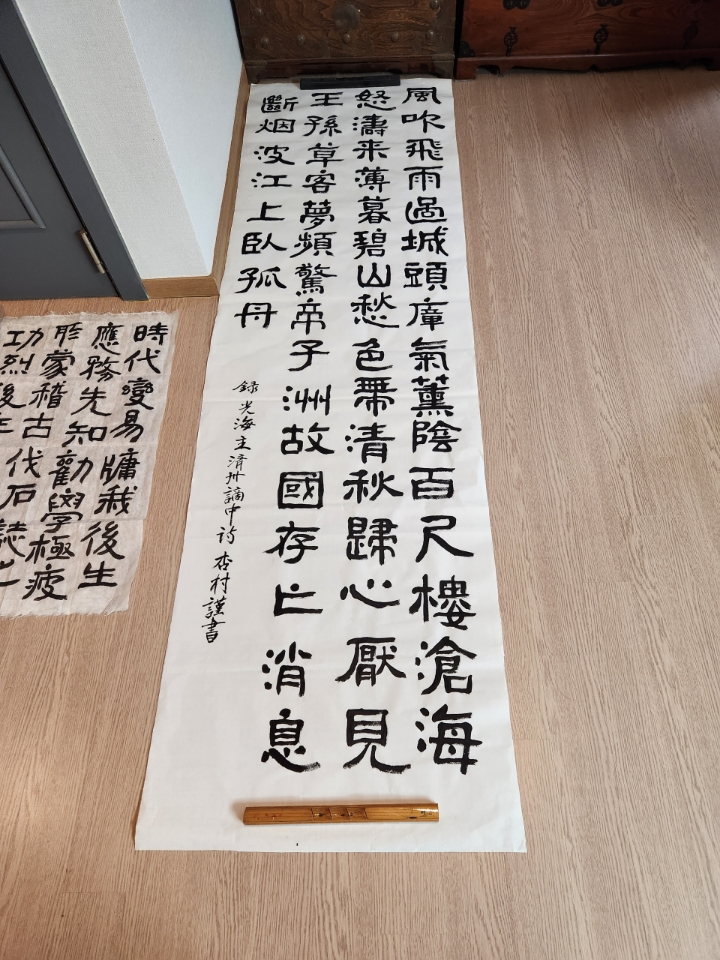 風吹飛雨過城頭瘴氣薰陰百尺樓滄海
怒濤来薄暮碧山愁色帶清秋歸心厭見
王孫草客夢頻驚帝子洲故國存亡消息
斷烟波江上臥孤舟
錄光海主濟州謫中詩 杏村謹書
時代變易牖我後生
應務先知勸學極疲
蒙稽古伐石誌之
功烈後